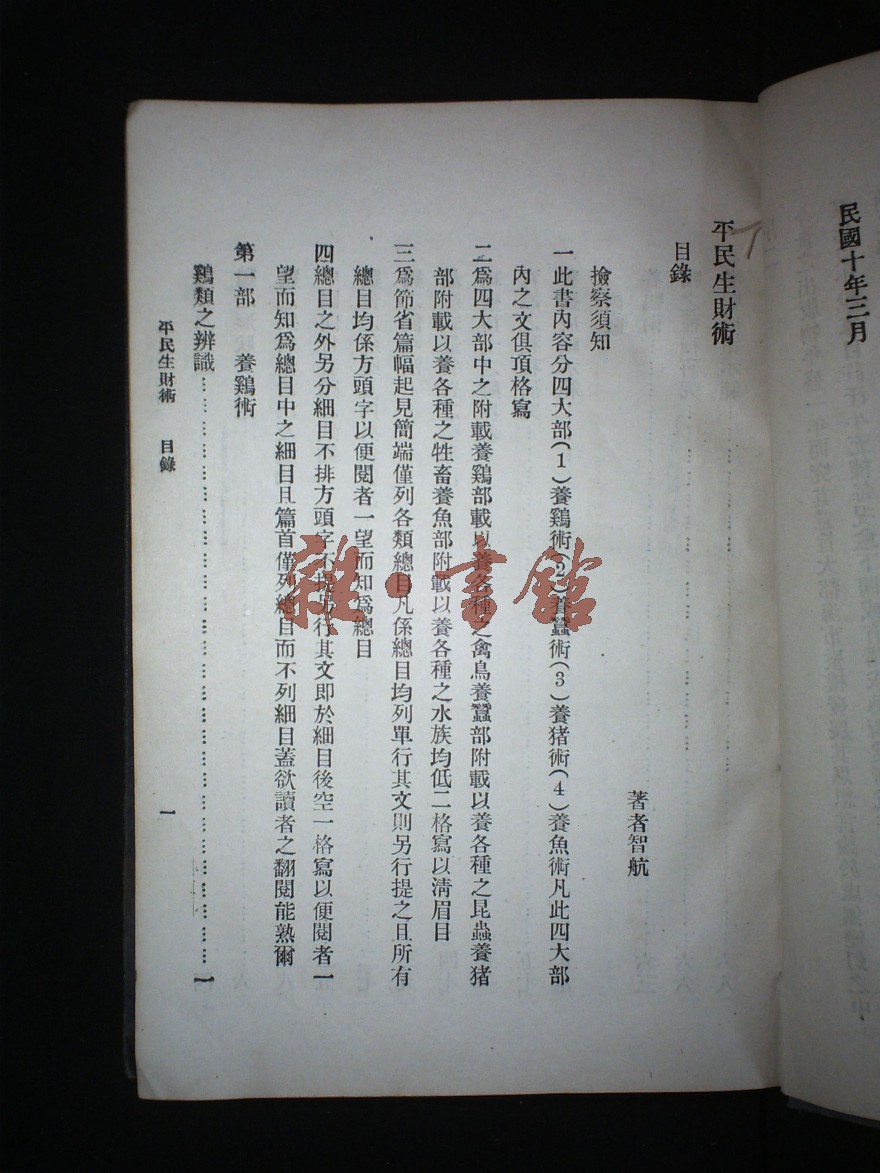 民國十年三月
平民生財術
目錄
著者智航
撿察須知
一此書內容分四大部(1)養鷄術(2)養蠶術(3)養猪術(4)養魚術凡此四大部
內之文俱頂格寫
二爲四大部中之附載養鷄部載以養各種之禽鳥養蠶部附載以養各種之昆蟲養猪
部附載以養各種之牲畜養魚部附載以養各種之水族均低二格寫以淸眉目
三爲節省篇幅起見簡端僅列各類總目凡係總目均列單行其文則另行提之且所有
總目均係方頭字以便閱者一望而知爲總目
四總目之外另分細目不排方頭字不提另行其文即於細目後空一格寫以便閱者一
望而知爲總目中之細目且篇首僅列總目而不列細目蓋欲讀者之翻閱能熟爾
第一部 養鷄術
鷄類之辨識……………………………………………………一
平民生財術 目錄
一
雜·書館